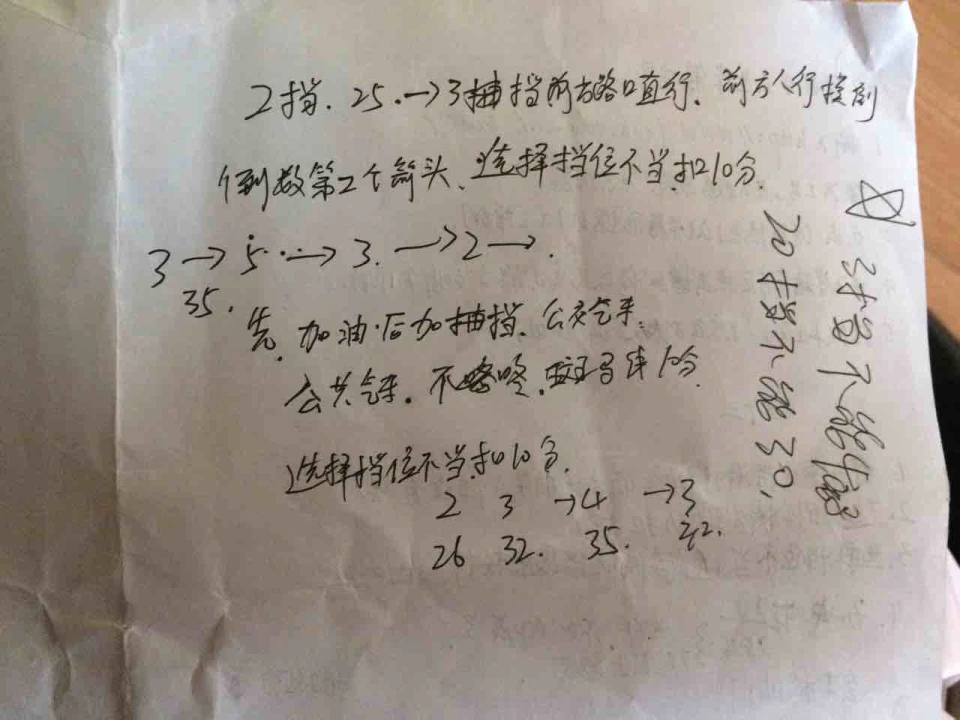 2挡.25.→3抽挡前方路口直行.前方人行
倒数第2个箭头、选择挡位不当扣10分.
3→5→3.→2→.
35.
先.加油.后加抽挡.公交汽车.
公共汽车.不 斑马线10分
选择挡位不当扣10分.
2 3 →4 →3
26 32. 35.
☆ 3挡不能
20 挡不能30.